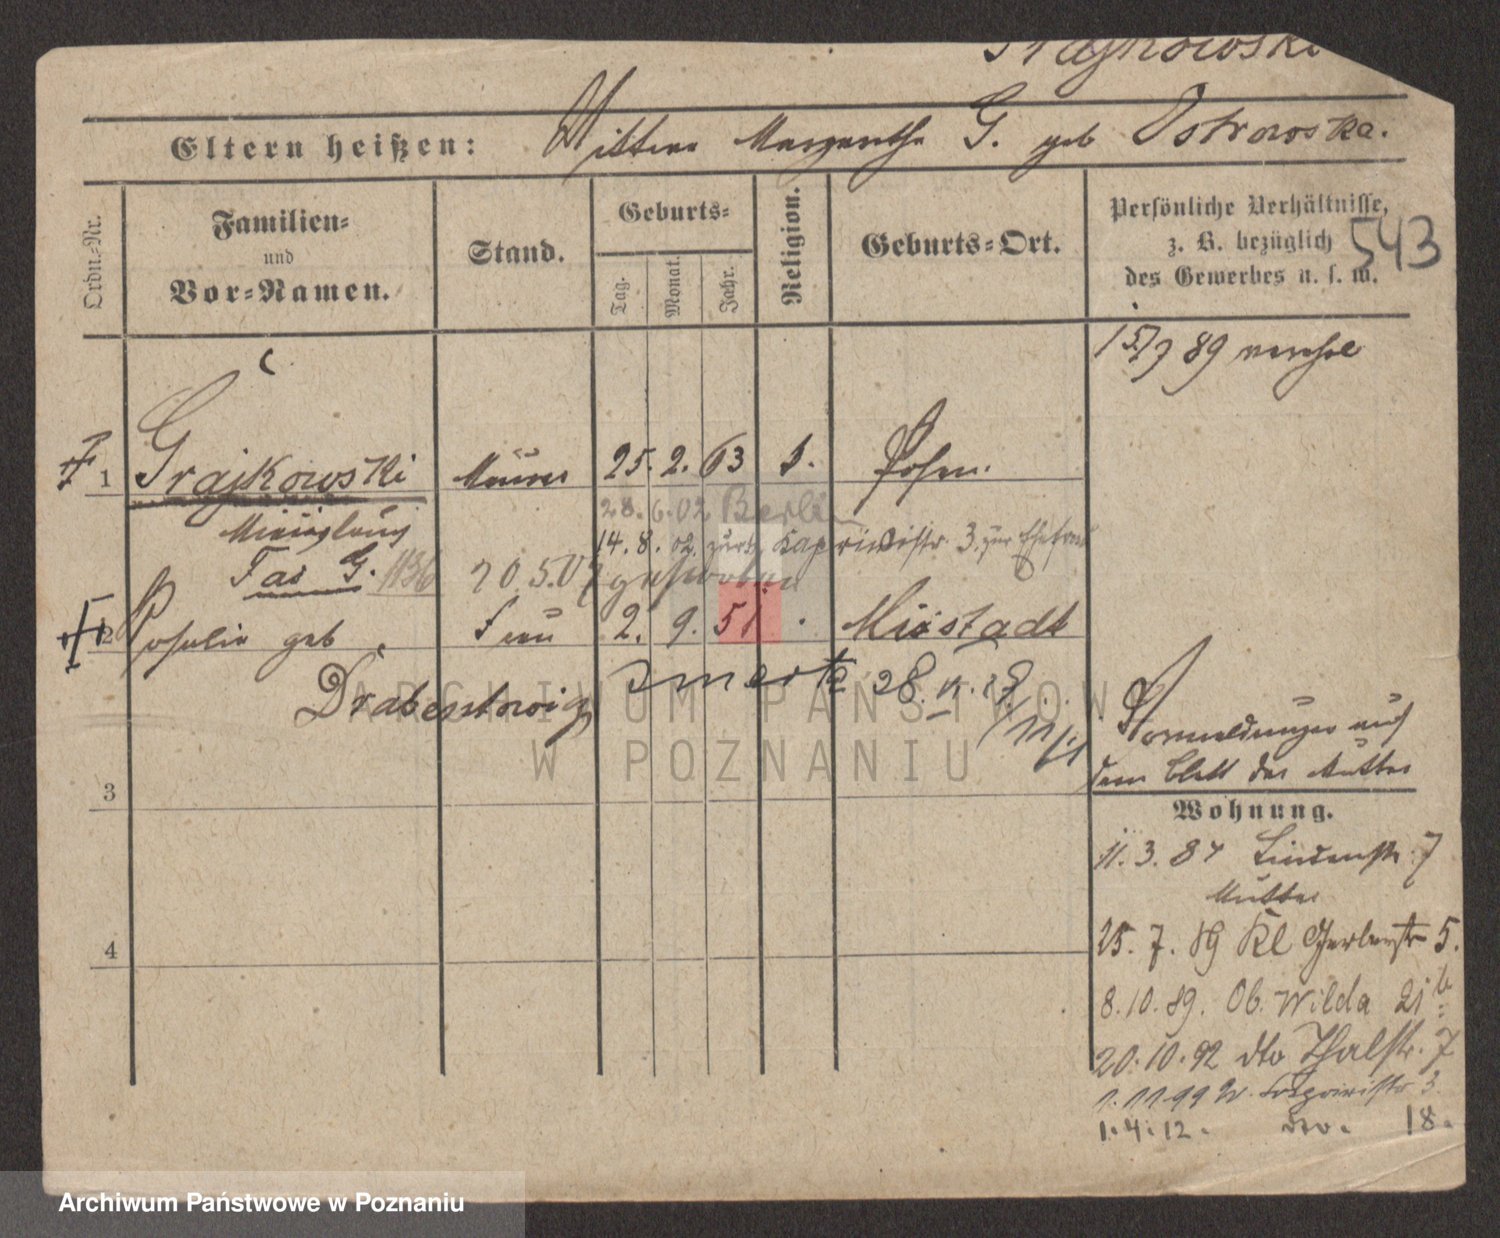 Grajkowski
Eltern heißen: Wittwe Margarethe G. geb Ostrowska.
Ordn.-Nr.
Familien-
und
Vor-Namen.
Stand.
Geburts-
Tag.
Monat.
Jahr.
Religion.
Geburts-Ort.
Persönliche Verhältnisse,
z. B. bezüglich
des Gewerbes u. s. w.
543
15/7 89
1 Grajkowski Maurer 25. 2. 63 Posen.
28. 6. 02 Berlin
14. 8. 02 zurück Kaprivistr. 3. zur Ehefrau
20.5.07 gestorben
2 Rosalie geb Frau 2. 9. 51 Mixstadt
28.
3
auf
dem Blatt der Mutter
Wohnung.
11. 3. 87 Lindenstr. 7
Mutter
25. 7. 89 Kl Gerberstr 5.
8. 10. 89. Ob. Wilda 21 b
20. 10. 92 dto Thalstr. 7
1. 11 99 W. Caprivistr 3.
1. 4. 12. dto. 18.
4
ARCHIWUM PAŃSTWOWE
W POZNANIU
Archiwum Państwowe w Poznaniu